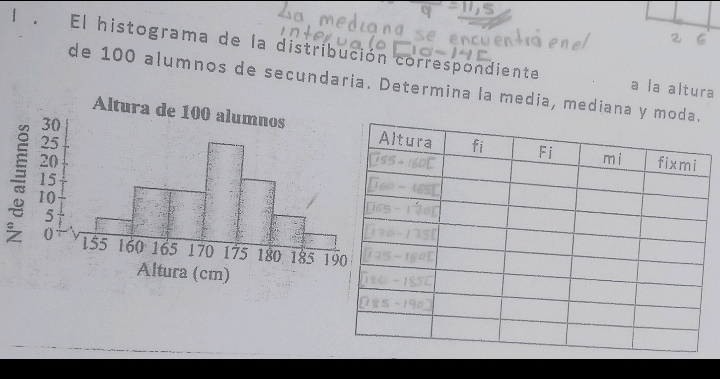 9 = 11,5
La mediana se encuentra en el
intervalo [10-14[
2 6
1. El histograma de la distribución correspondiente a la altura
de 100 alumnos de secundaria. Determina la media, mediana y moda.
Altura de 100 alumnos
Nº de alumnos
30
25
20
15
10
5
0
155 160 165 170 175 180 185 190
Altura (cm)
Altura fi Fi mi fixmi
[155-160[
[160-165[
[165-170[
[170-175[
[175-180[
[180-185[
[185-190]